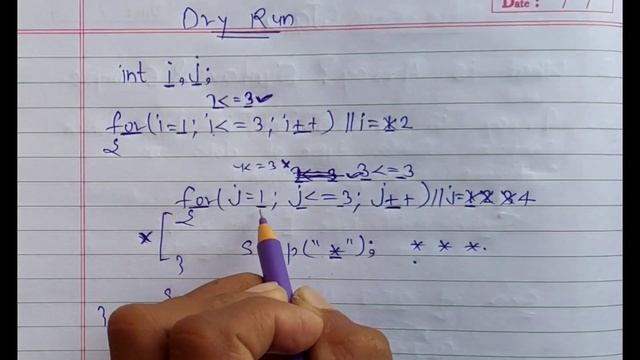 Date : / /
Dry Run
int i,j;
2<=3✓
for(i=1; i<=3; i++) //i=2
{
4<=3× 3<=3
for(j=1; j<=3; j++) //j=4
* [ {
p("*"); * * *.
}
}